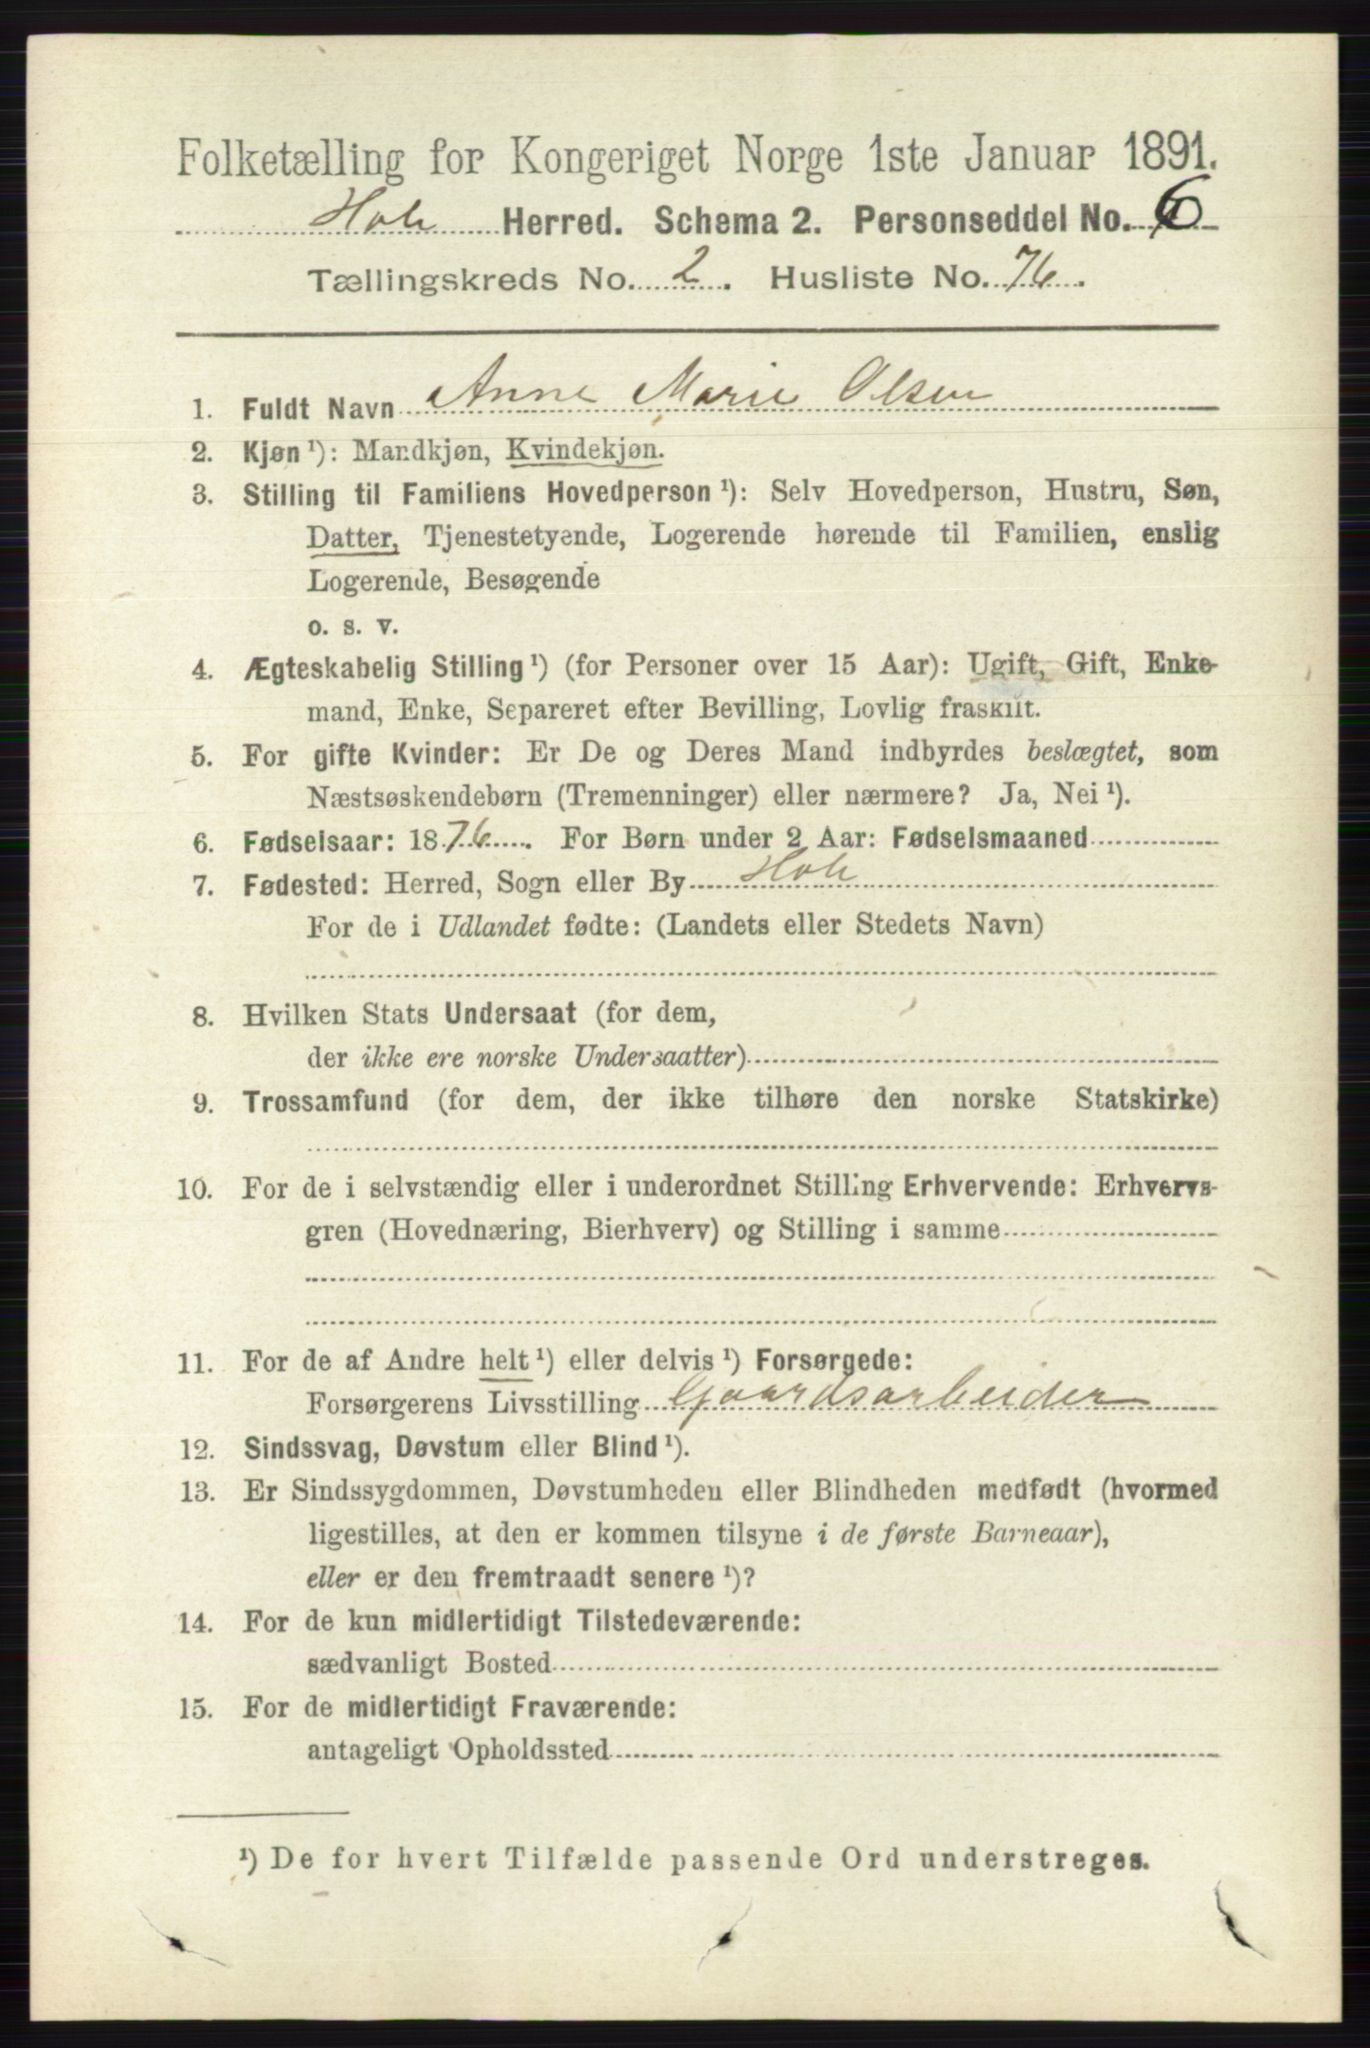 Folketælling for Kongeriget Norge 1ste Januar 1891.
Hole Herred. Schema 2. Personseddel No. 6
Tællingskreds No. 2. Husliste No. 76.
1. Fuldt Navn Anne Marie Olsen
2. Kjøn ¹): Mandkjøn, Kvindekjøn.
3. Stilling til Familiens Hovedperson ¹): Selv Hovedperson, Hustru, Søn,
Datter, Tjenestetyende, Logerende hørende til Familien, enslig
Logerende, Besøgende
o. s. v.
4. Ægteskabelig Stilling ¹) (for Personer over 15 Aar): Ugift, Gift, Enke-
mand, Enke, Separeret efter Bevilling, Lovlig fraskilt.
5. For gifte Kvinder: Er De og Deres Mand indbyrdes beslægtet, som
Næstsøskendebørn (Tremenninger) eller nærmere? Ja, Nei ¹).
6. Fødselsaar: 1876. For Børn under 2 Aar: Fødselsmaaned
7. Fødested: Herred, Sogn eller By Hole
For de i Udlandet fødte: (Landets eller Stedets Navn)
8. Hvilken Stats Undersaat (for dem,
der ikke ere norske Undersaatter)
9. Trossamfund (for dem, der ikke tilhøre den norske Statskirke)
10. For de i selvstændig eller i underordnet Stilling Erhvervende: Erhvervs-
gren (Hovednæring, Bierhverv) og Stilling i samme
11. For de af Andre helt ¹) eller delvis ¹) Forsørgede:
Forsørgerens Livsstilling Gaardsarbeider
12. Sindssvag, Døvstum eller Blind ¹).
13. Er Sindssygdommen, Døvstumheden eller Blindheden medfødt (hvormed
ligestilles, at den er kommen tilsyne i de første Barneaar),
eller er den fremtraadt senere ¹)?
14. For de kun midlertidigt Tilstedeværende:
sædvanligt Bosted
15. For de midlertidigt Fraværende:
antageligt Opholdssted
¹) De for hvert Tilfælde passende Ord understreges.